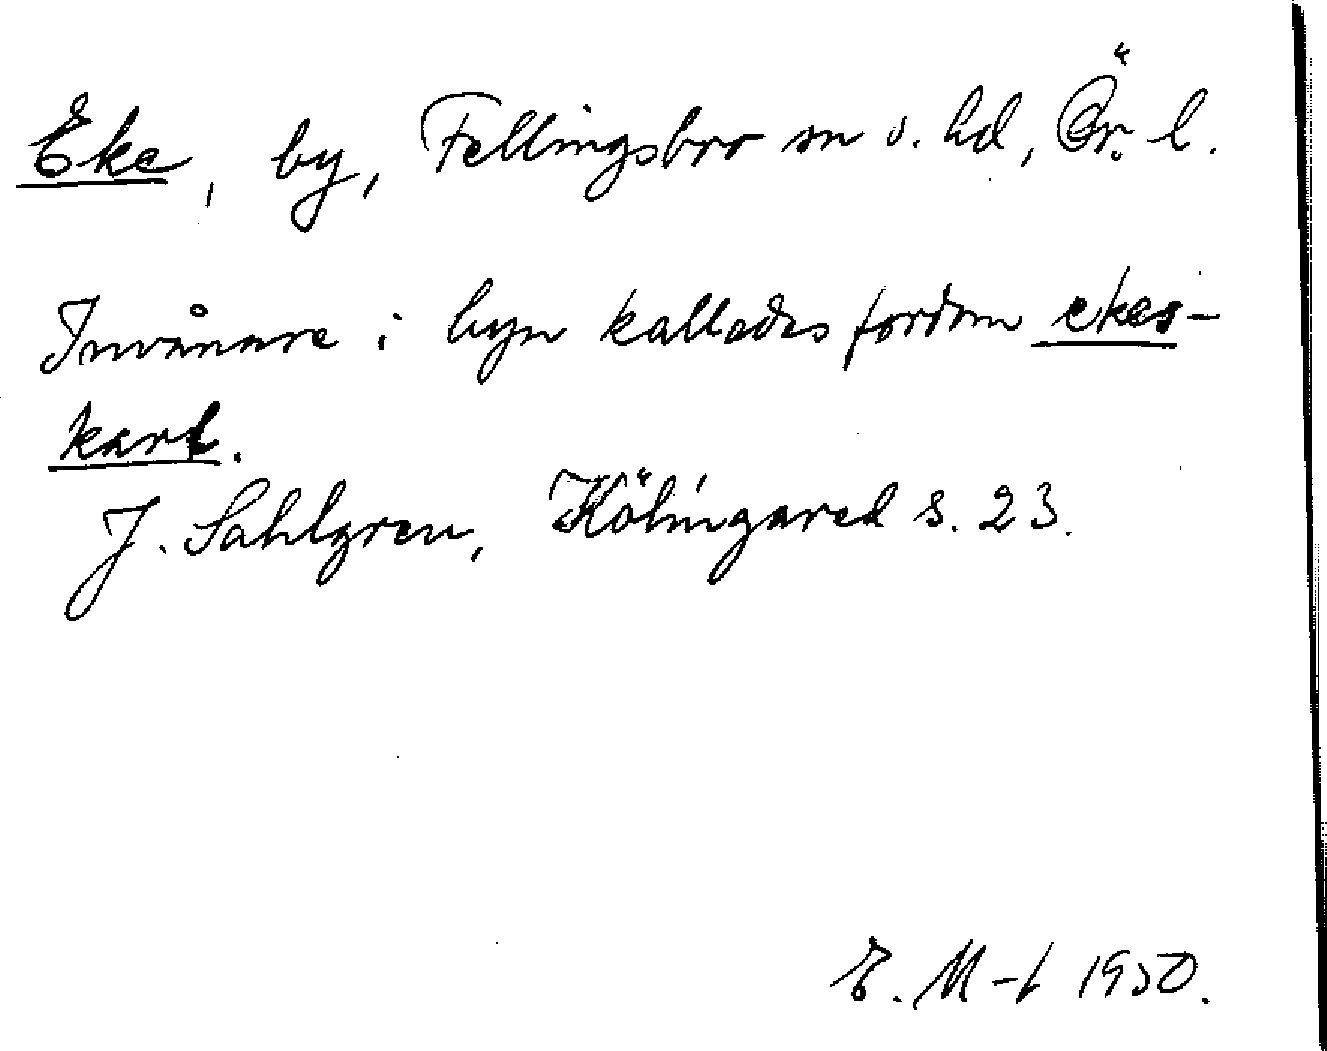 Eke, by, Fellingsbro sn o. hd, Ör. l.
Invånare i byn kallades fordom ekes-
karl.
J. Sahlgren, Hölingared s. 23.
E. M-t 1950.